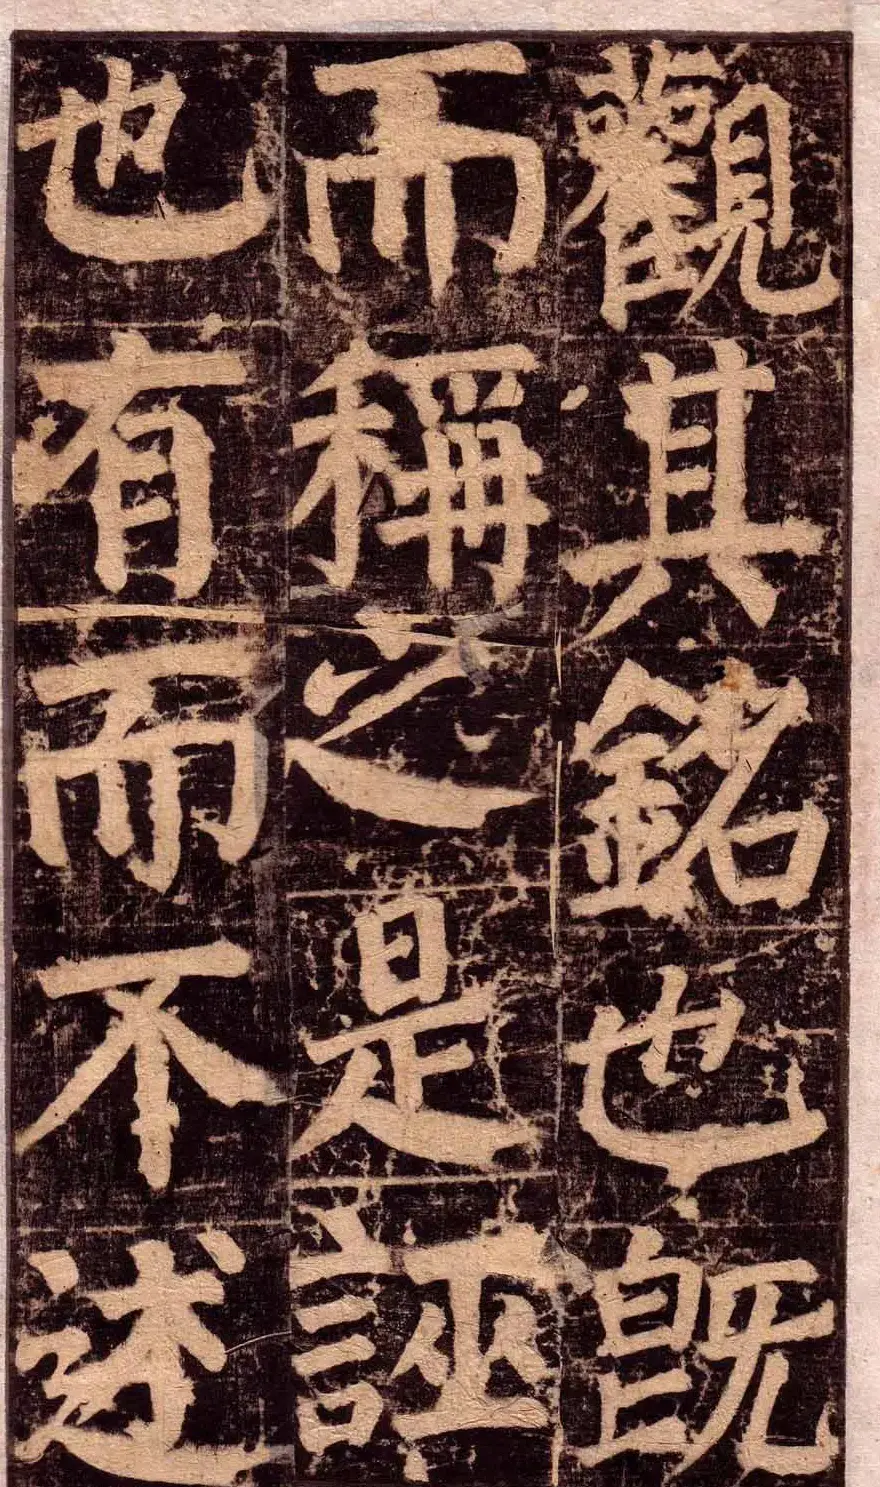 觀其銘也既
而稱之是誣
也有而不述